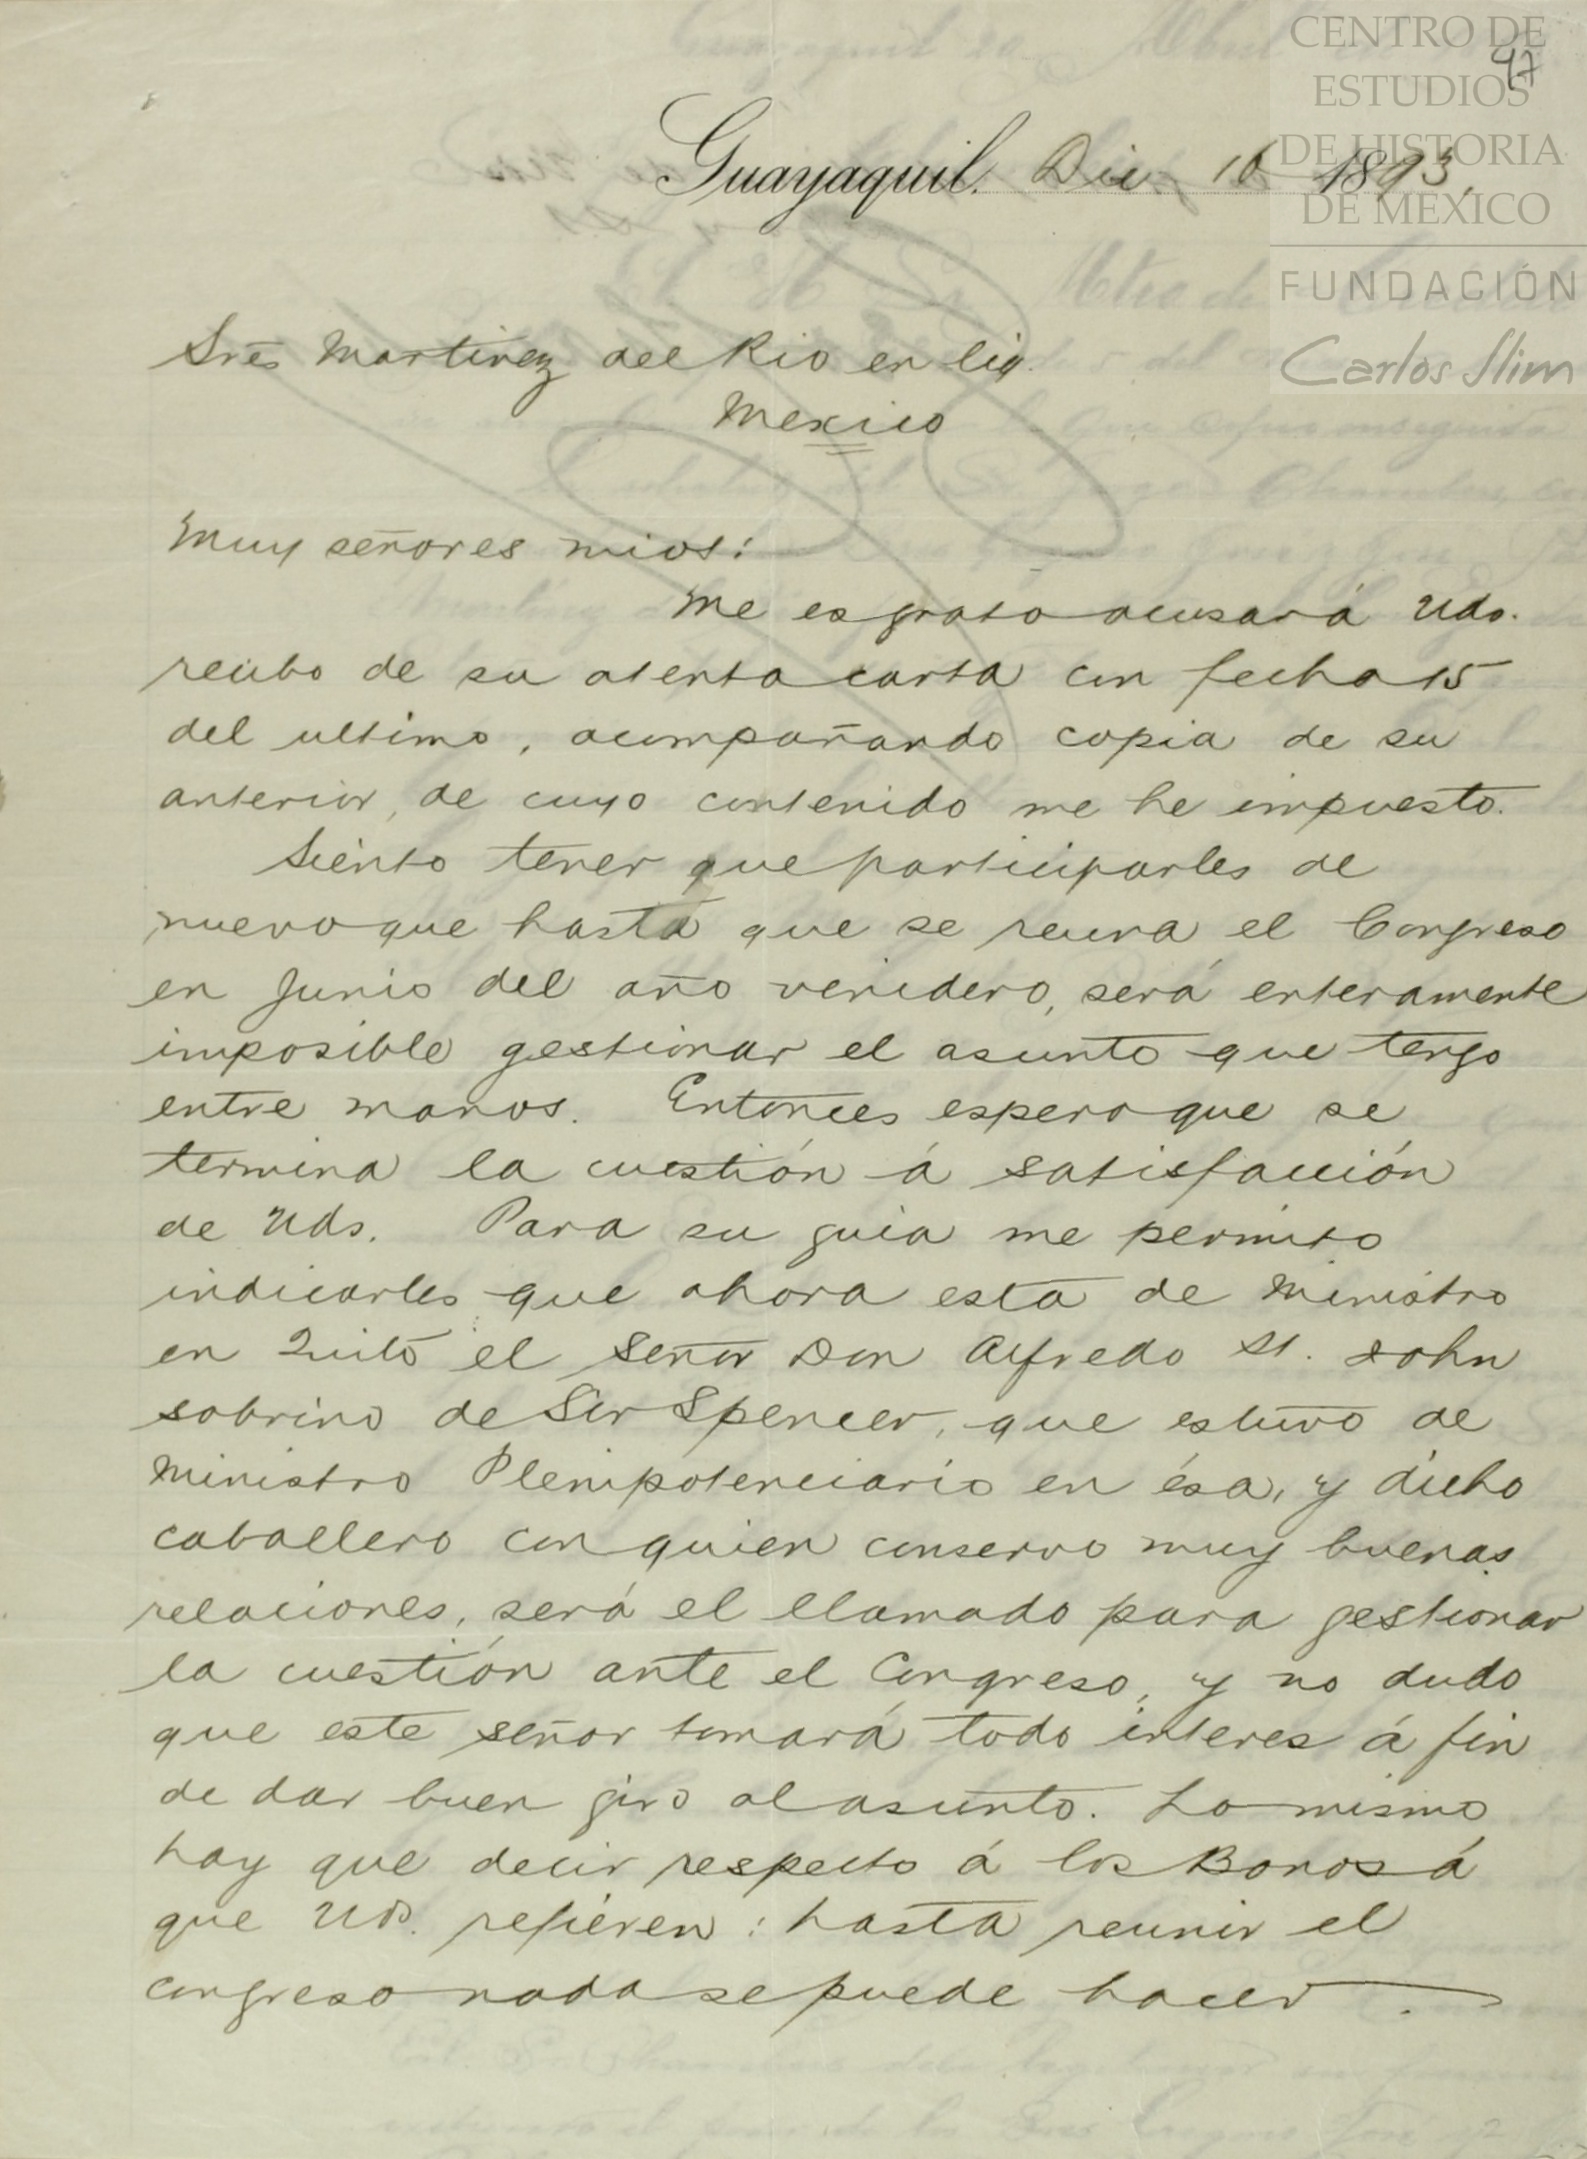 CENTRO DE
ESTUDIOS
DE HISTORIA
DE MEXICO
FUNDACIÓN
Carlos Slim
97
Guayaquil. Dic. 16 1893,
Sres Martinez del Rio en liq.
Mexico
Muy señores mios:
Me es grato acusar á Uds.
recibo de su atenta carta con fecha 15
del ultimo, acompañando copia de su
anterior, de cuyo contenido me he impuesto.
Siento tener que participarles de
nuevo que hasta que se reuna el Congreso
en Junio del año venidero, será enteramente
imposible gestionar el asunto que tengo
entre manos. Entonces espero que se
termina la cuestión á satisfacción
de Uds. Para su guia me permito
indicarles que ahora esta de Ministro
en Quito el Señor Don Alfredo St. John
sobrino de Sir Spencer, que estuvo de
Ministro Plenipotenciario en ésa, y dicho
caballero con quien conservo muy buenas
relaciones, será el llamado para gestionar
la cuestión ante el Congreso, y no dudo
que este señor tomará todo interes á fin
de dar buen giro al asunto. Lo mismo
hay que decir respecto á los Bonos á
que Uds. refieren: hasta reunir el
congreso nada se puede hacer.